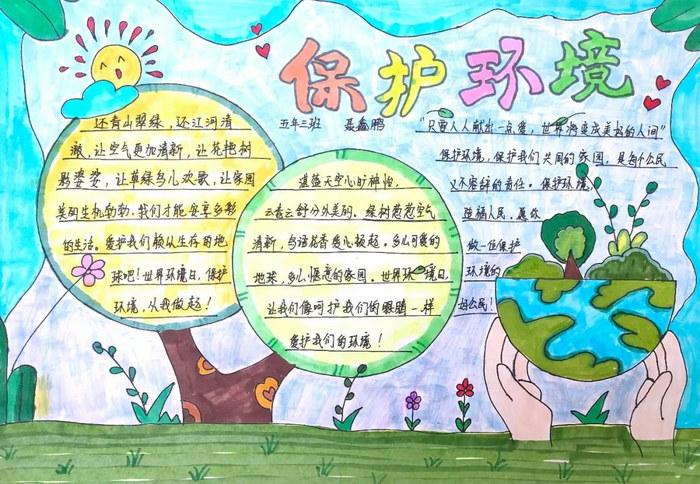 保护环境
五年三班 聂鑫鹏
还青山翠绿，还江河清
澈，让空气更加清新，让花艳树
影婆娑，让草绿鸟儿欢歌，让家园
美丽生机勃勃，我们才能安享多彩
的生活。爱护我们赖以生存的地
球吧！世界环境日，保护
环境，从我做起！
蓝蓝天空心旷神怡，
云卷云舒分外美丽。绿树葱葱空气
清新，鸟语花香爱心接起。多么可爱的
地球，多么惬意的家园。世界环境日，
让我们像呵护我们的眼睛一样
爱护我们的环境！
"只要人人献出一点爱，世界将变成美好的人间"
保护环境，保护我们共同的家园，是每个公民
义不容辞的责任。保护环境，
造福人民，愿你
做一位保护
环境的
好公民！